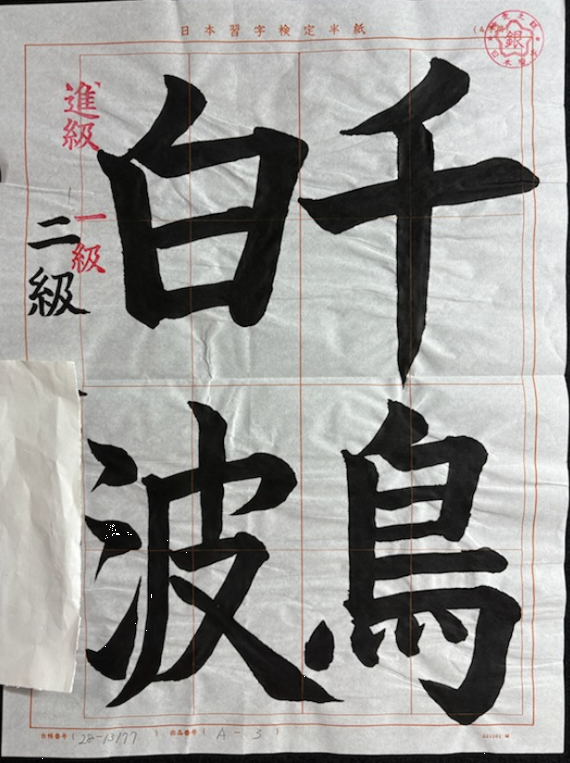 日本習字検定半紙
銀
千鳥
白波
進級
一級
二級
受検番号( 28-13177 ) 出品番号( A - 3 )